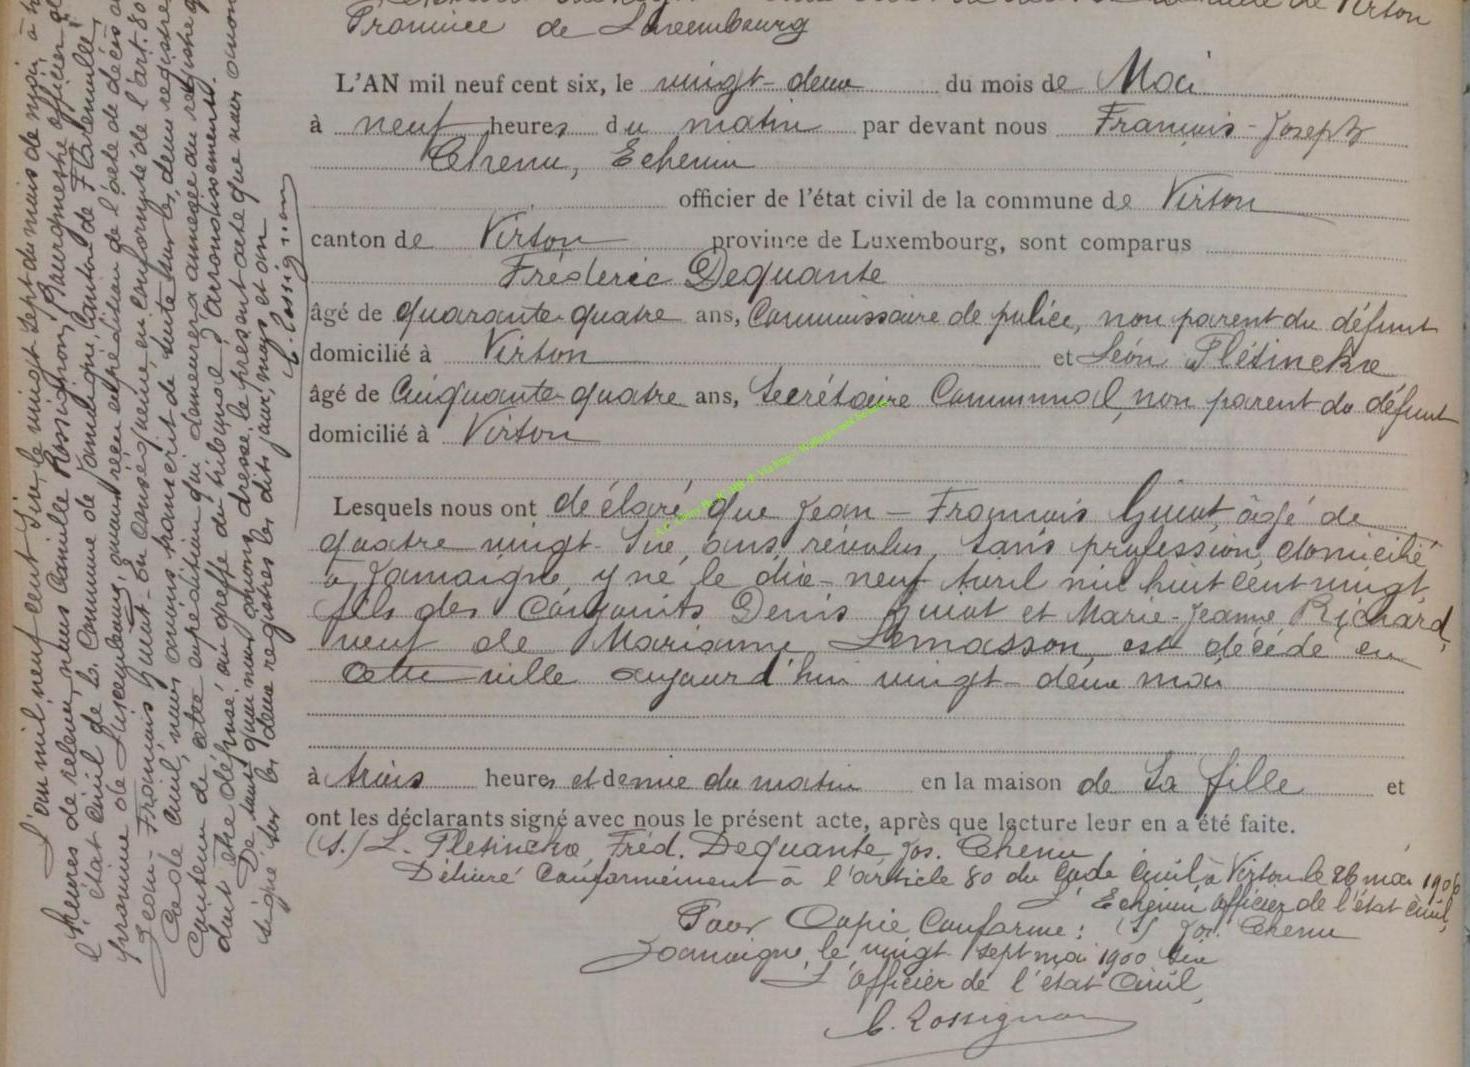 de Virton
Province de Luxembourg
L'AN mil neuf cent six, le vingt-deux du mois de Mai
à neuf heures du matin par devant nous François-Joseph
Chenu, Echevin
officier de l'état civil de la commune de Virton
canton de Virton province de Luxembourg, sont comparus
Fréderic Dequante
âgé de quarante-quatre ans, Commissaire de police, non parent du défunt
domicilié à Virton et Léon Pletinckx
âgé de Cinquante-quatre ans, Secrétaire Communal, non parent du défunt
domicilié à Virton
Lesquels nous ont déclaré que Jean-François Guiot, âgé de
quatre vingt-six ans, révolus, sans profession, domicilié
à Jamoigne, y né le dix-neuf Avril mil huit cent vingt
fils des Conjoints Denis Guiot et Marie-Jeanne Richard,
veuf de Marianne Lemasson, est décédé en
cette ville aujourd'hui vingt-deux mai
à trois heures et demie du matin en la maison de sa fille et
ont les déclarants signé avec nous le présent acte, après que lecture leur en a été faite.
(s.) L. Pletinckx, Fréd. Dequante, Jos. Chenu
Délivré Conformément à l'article 80 du Code Civil à Virton le 26 mai 1906
L'Echevin officier de l'état civil,
Pour Copie Conforme : (s) Jos. Chenu
Jamoigne, le vingt-sept mai 1900 six
L'officier de l'état Civil,
C. Rossignon
L'an mil neuf cent Six, le vingt sept du mois de mai à
heures de relevée, nous Camille Rossignon, Bourgmestre officier de
l'état Civil de la Commune de Jamoigne, Canton de Florenville,
province de Luxembourg, ayant reçu expédition de l'acte de décès de
Jean-François Guiot, en conséquence en conformité de l'art. 80
Code Civil, nous avons transcrit de suite sur les deux registres
contenu de cette expédition qui demeurera annexée au registre qui
doit être déposé au greffe du tribunal d'arrondissement.
De tout quoi nous avons dressé le présent acte que nous avons
signé sur les deux registres les dits jour, mois et an
C. Rossignon